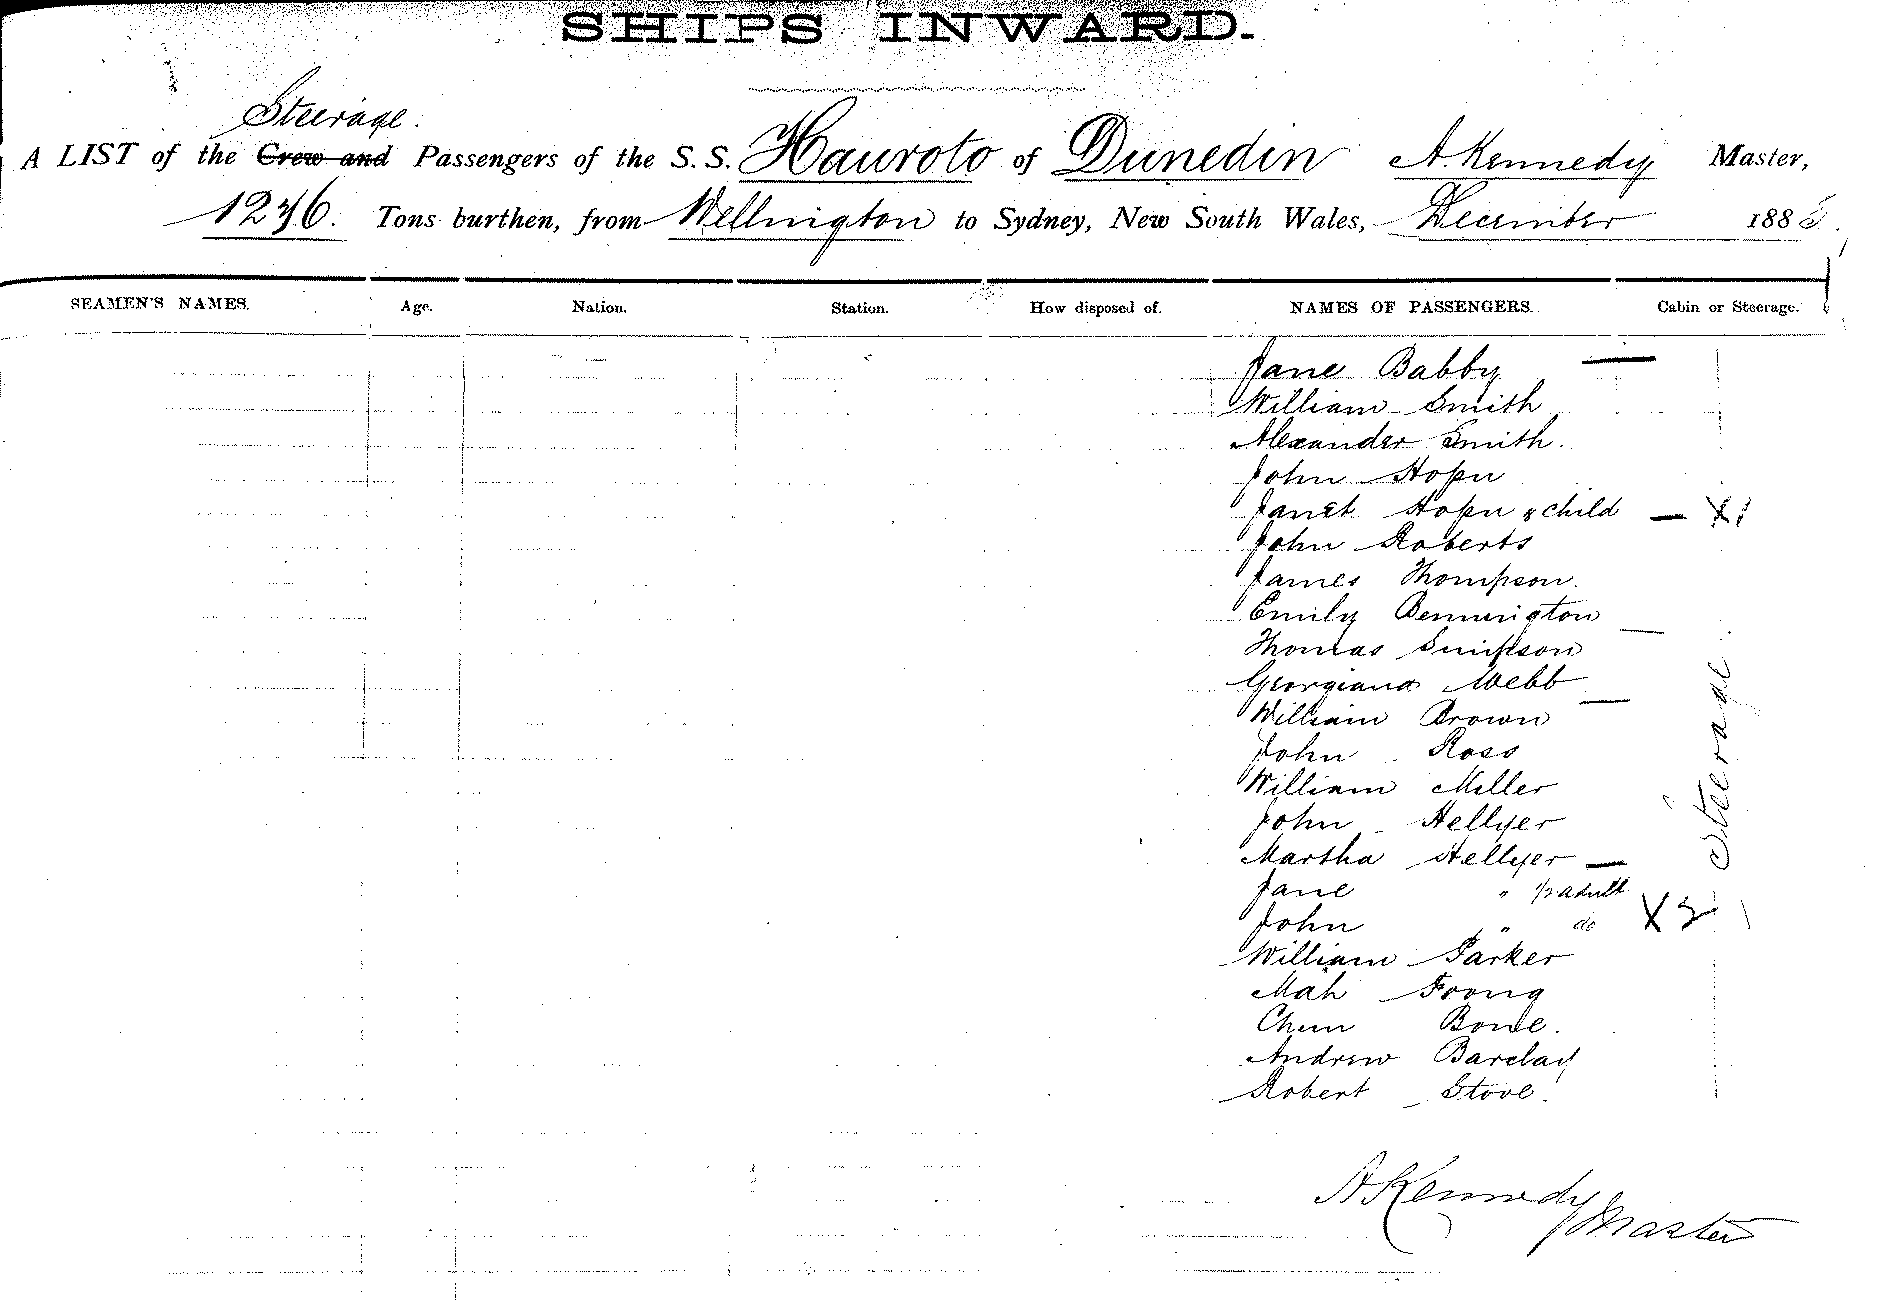 SHIPS INWARD.
Steerage.
A LIST of the Crew and Passengers of the S.S. Hauroto of Dunedin A. Kennedy Master,
1276. Tons burthen, from Wellington to Sydney, New South Wales, December 188
SEAMEN'S NAMES. Age. Nation. Station. How disposed of. NAMES OF PASSENGERS. Cabin or Steerage.
Jane Babby —
William Smith
Alexander Smith.
John
Janet & child — X1
John Roberts
James Thompson.
Emily Bennington —
Thomas Simpson
Georgiana Webb —
William Brown
John Ross
William Miller
John Hellyer
Martha Hellyer —
Jane " 1/2 adult
John " do X2
William Parker
Mah Foong
Chun Bowe.
Andrew Barclay
Robert Stove.
Steerage
A Kennedy
Master